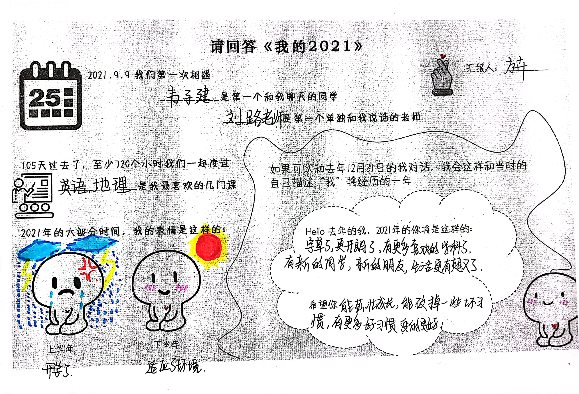 请回答《我的2021》
汇报人：
2021.9.9 我们第一次相遇
韦子建 是第一个和我聊天的同学
刘路老师是第一个单独和我说话的老师
105天过去了，至少720个小时我们一起度过
英语，地理 是我最喜欢的几门课
2021年的大部分时间，我的表情是这样的：
上半年
下半年
开学了
适应了环境.
如果可以和去年12月31日的我对话，我会这样和当时的
自己描述“我”将经历的一年
Hello 去年的我，2021年的你将是这样的：
有新的同学，新的朋友，生活更有趣了.
希望你能茁壮成长，能改掉一些坏习
惯，有更多好习惯